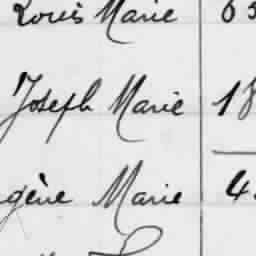 Louis Marie 6
Joseph Marie 18
gène Marie 4